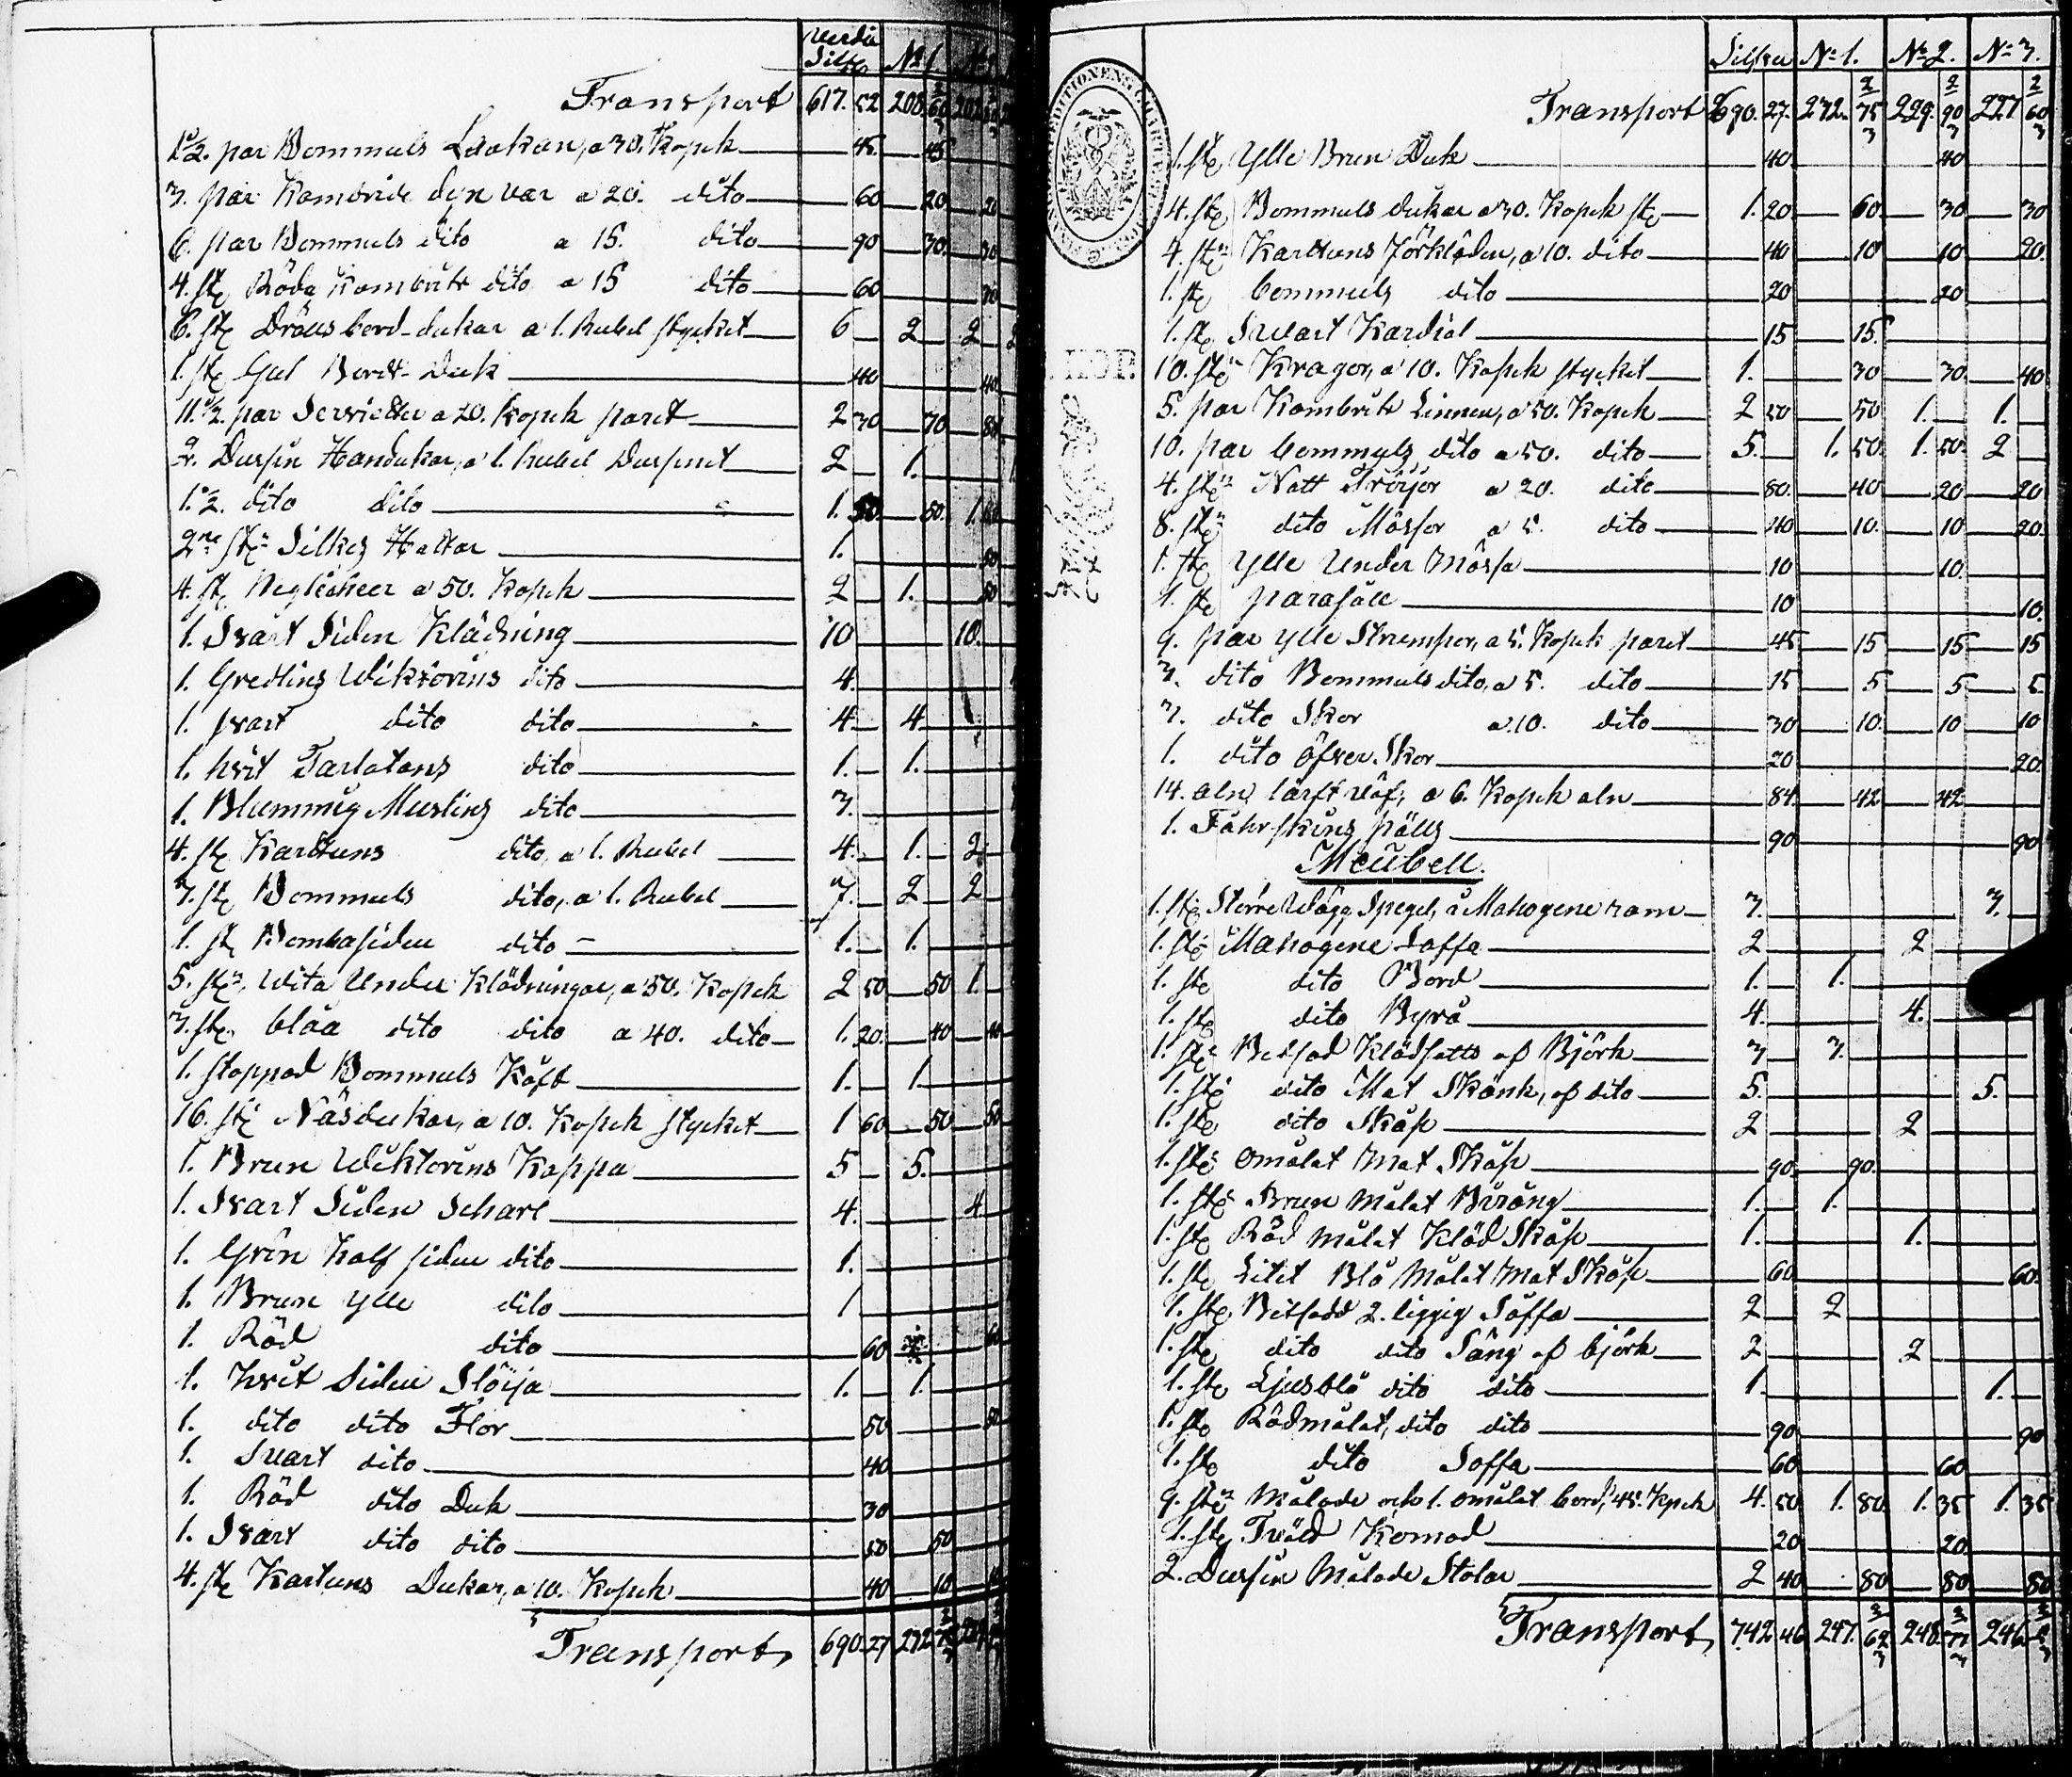 Verdie
Silfver No 1.
Transport 617. 52 208. 60 2/3 202
1 1/2. par Bommuls Laakan, a 30. Kopek 45 45
3. par Kambriks dyn var a 20. dito 60 20 20
6. par Bommuls dito a 15. dito 90 30 30
4. ste Röda Kambriks dito a 15 dito 60 30
6. ste Drälls bord-dukar a 1. Rubel stycket 6 2 2
1. ste Gul Bordt-Duk 40 40
11 1/2. par Servietter a 20. Kopek paret 2 30 70 80
2. Dussin Handukar, a 1. Rubel Dussinet 2 1.
1 1/2. dito dito 1. 50 50 1.
2ne ste Silkes Hattar 1. 50
4. ste Neglischeer a 50. Kopek 2 1. 50
1. Svart Siden Klädning 10 10.
1. Gredlins Wiktorins dito 4.
1. svart dito dito 4. 4.
1. hvit Tarlatans dito 1. 1.
1. Blummig Muslins dito 3.
4. ste Kartuns dito, a 1. Rubel 4. 1. 2.
7. ste Bommuls dito, a 1. Rubel 7. 2 2
1. st Bombasiden dito 1. 1.
5. ste Wita Under Klädningar, a 50. Kopek 2 50 50 1.
3. ste blåa dito dito a 40. dito 1. 20. 40 40
1. stoppad Bommuls Koft 1. 1.
16. ste Näsdukar, a 10. Kopek stycket 1 60 50 50
1. Brun Wiktorins Kappa 5 5.
1. Svart Siden Scharl 4. 4
1. Grön Half siden dito 1.
1. Brun ylle dito 1
1. Röd dito 60 60
1. hvit Siden Slöija 1. 1.
1. dito dito Flor 50 50
1. Svart dito 40
1. Röd dito Duk 30
1. Svart dito dito 50 50
4. ste Kartuns Dukar, a 10. Kopek 40 10 10
Transport 690. 27 212.
Silfver No 1. No 2. No 3.
Transport 690. 27. 212. 75 2/3 229. 90 2/3 227. 60 2/3
1. ste Ylle Brun Duk 40 40
4. ste Bommuls dukar a 30. Kopek ste 1. 20 60 30 30
4. ste Kartuns förkläden, a 10. dito 40 10 10 20.
1. ste bommuls dito 20 20
1. ste Svart Kardial 15 15.
10. ste Kragor, a 10. Kopek stycket 1. 30 30. 40
5. par Kambriks Linnen, a 50. Kopek 2 50 50 1. 1.
10. par bommuls dito a 50. dito 5. 1. 50. 1. 50. 2
4. ste Natt Tröijor a 20. dito 80. 40 20 20
8. ste dito Mössor a 5. dito 40 10. 10 20.
1. ste Ylle Under Mössa 10 10.
1. ste parasåll 10 10.
9. par ylle Strumpor, a 5. Kopek paret 45 15 15 15
3. dito Bommuls dito, a 5. dito 15 5 5 5
3. dito Skor a 10. dito 30 10. 10 10
1. dito öfver Skor 20 20.
14. aln lärft väf, a 6. Kopek aln 84. 42 42
1. Fåhr skins pälls 90 90
Meubell.
1. ste Större Wägg Spegel, i Mahogene ram 3. 3.
1. ste Mahogene Saffa 2 2
1. ste dito Bord 1. 1.
1. ste dito Byrå 4. 4.
1. ste Betsad Klädsatts af Björk 3 3.
1. ste dito Mat Skänk, af dito 5. 5.
1. ste dito Skåp 2 2
1. ste omålat Mat Skåp 90. 90.
1. ste Brun Målat 1. 1.
1. ste Röd målat Kläd Skåp 1. 1.
1. ste Litet Blå Målat Mat Skåp 60 60.
1. ste Betsadd 2. liggig Soffa 2 2
1. ste dito dito Säng af björk 2 2
1. ste Ljusblå dito dito 1. 1.
1. ste Rödmålat, dito dito 90 90
1. ste dito Soffa 60 60
9. ste Målade och 1. omålat bord, 45. Kpek 4. 50 1. 80. 1. 35 1. 35
1. ste Tväld Komod 20 20.
2. Dussin Målade Stolar 2 40 80 80 80
Transport 742. 46 247. 248. 246.